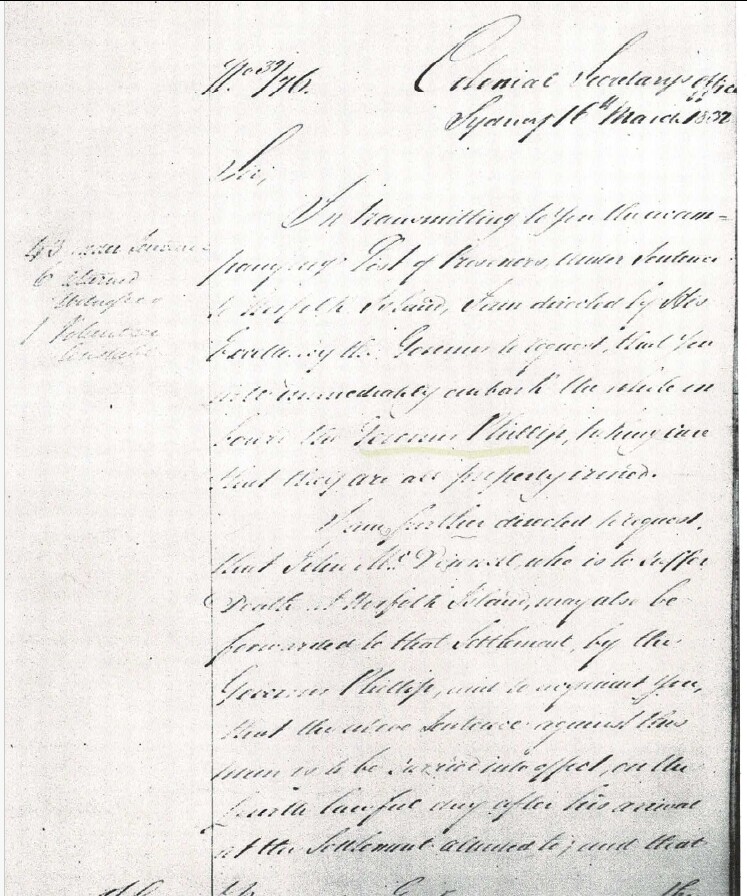 No 32/76.
Colonial Secretary's Office
Sydney 16th March 1832
Sir,
In transmitting to you the accom=
43 under Sentence
panying List of Prisoners, under Sentence
6 Returned
to Norfolk Island, I am directed by His
1 Volunteer
Excellency the Governor to request, that you
will immediately embark the whole in
board the Governor Phillip, taking care
that they are all properly ironed.
I am further directed to request,
that John Mc who is to suffer
Death at Norfolk Island, may also be
forwarded to that Settlement, by the
Governor Phillip, and to acquaint you,
that the above Sentence against this
man is to be carried into effect, on the
fourth lawful day after his arrival
at the Settlement alluded to; and that